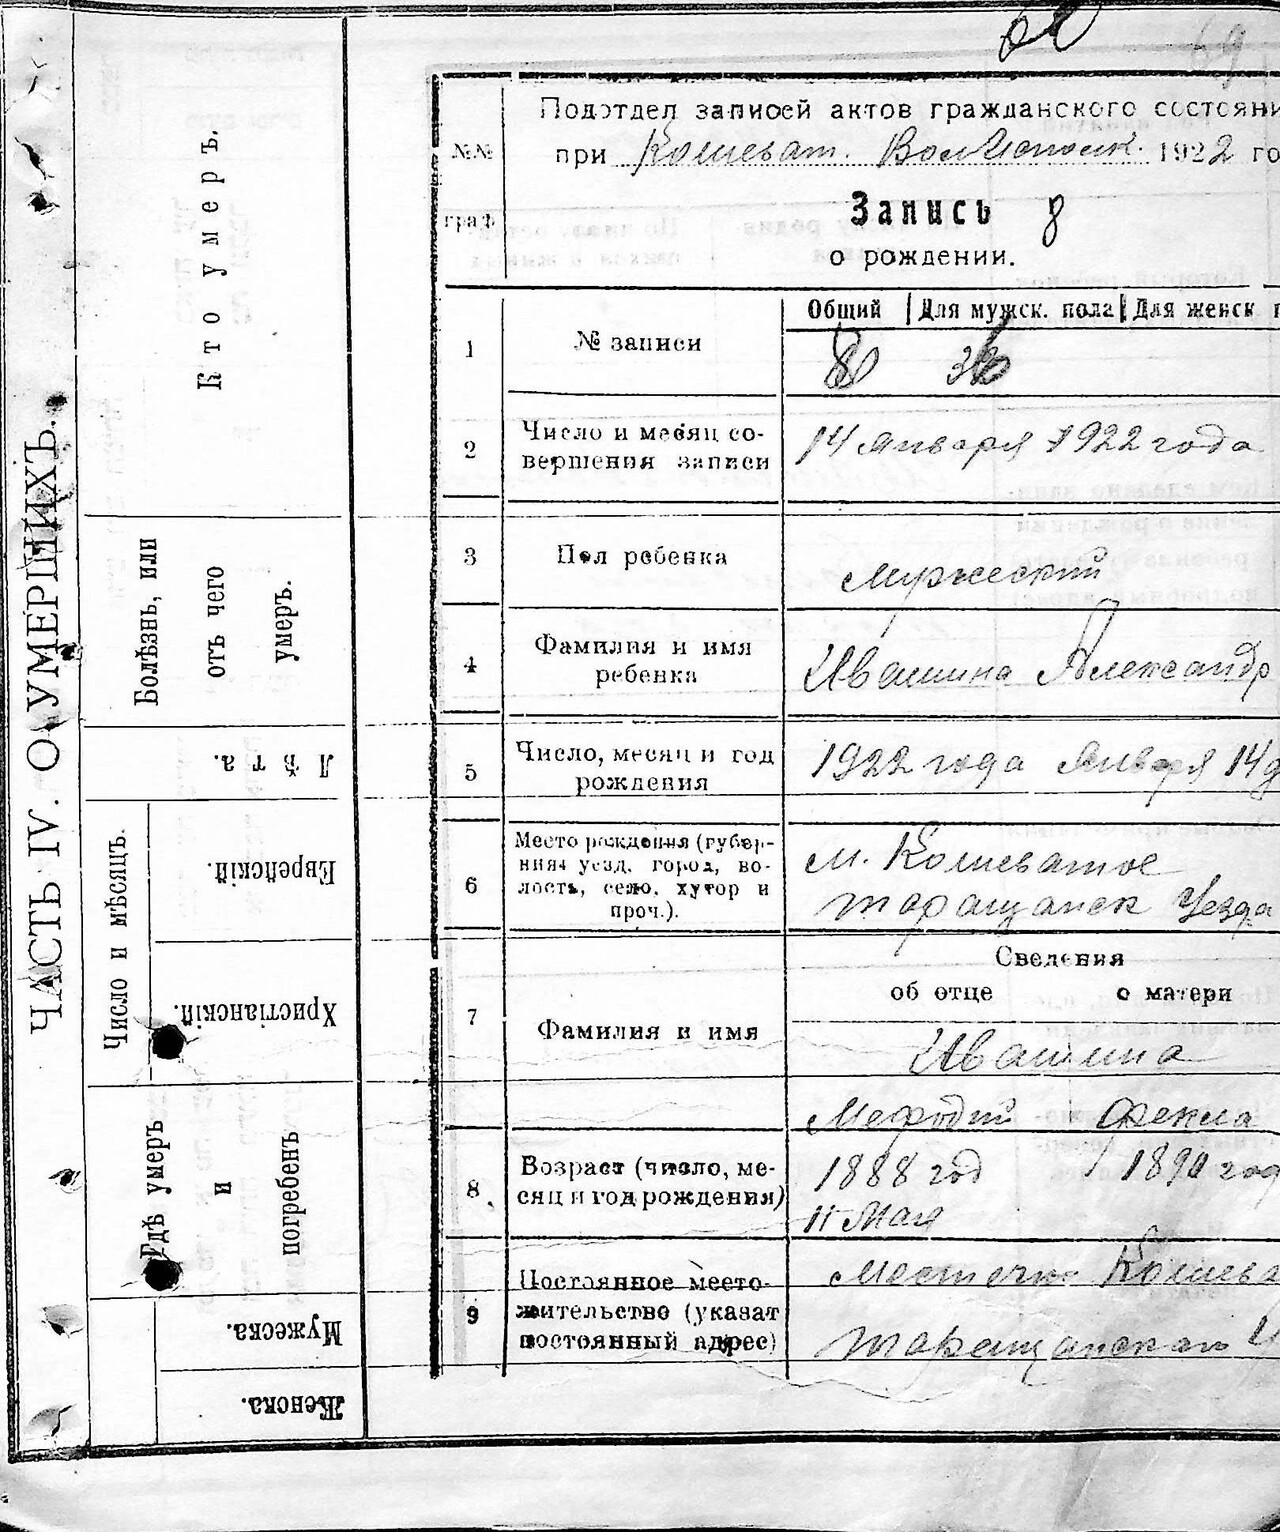 69
ЧАСТЬ IV. О УМЕРШИХЪ.
Кто умеръ.
Болѣзнь, или
отъ чего
умеръ.
Лѣта.
Число и мѣсяцъ.
Еврейскій.
Христіанскій.
Гдѣ умеръ
и
погребенъ
Мужеска.
Женска.
Подотдел записей актов гражданского состояни
№№ граф
при Кошеват. Волисполк. 1922 го
Запись 8
о рождении.
Общий Для мужск. пола Для женск п
1 № записи 8
2 Число и месяц со-
вершения записи 14 января 1922 года
3 Пол ребенка Мужеский
4 Фамилия и имя
ребенка Ивашина Александр
5 Число, месяц и год
рождения 1922 года Января 14 д
6 Место рождения (губер-
ния, уезд, город, во-
лость, село, хутор и
проч.). м. Кошеватое
таращанск Уезда
Сведения
об отце о матери
7 Фамилия и имя Ивашина
Мефодий Фекла
8 Возраст (число, ме-
сяц и год рождения) 1888 год 1890 год
11 Мая
9 Постоянное место-
жительство (указат
постоянный адрес) Местечко Кошева
таращанскаго У